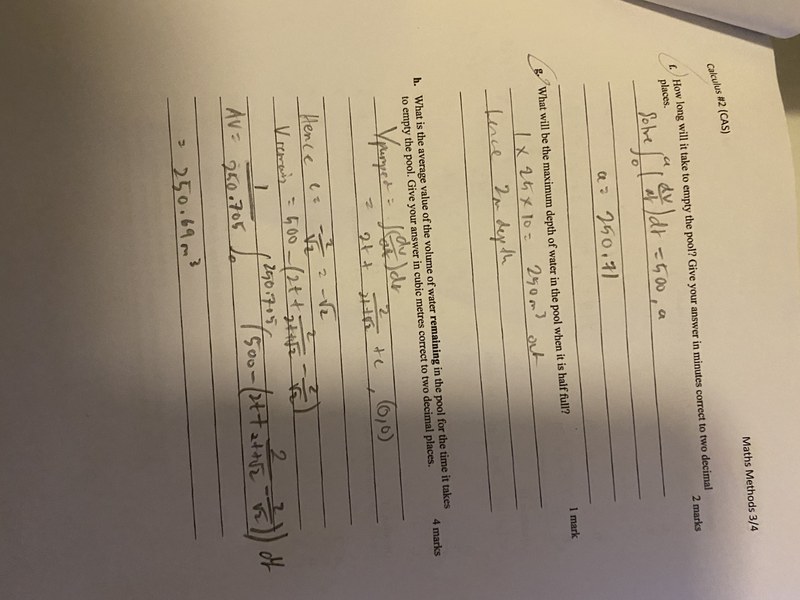 Calculus #2 (CAS)
Maths Methods 3/4
f. How long will it take to empty the pool? Give your answer in minutes correct to two decimal places.
2 marks
Solve ∫₀ᵃ (dv/dt) dt = 500, a
a = 250.71
g. What will be the maximum depth of water in the pool when it is half full?
1 mark
1 x 25 x 10 = 250m³ out
hence 2m depth
h. What is the average value of the volume of water remaining in the pool for the time it takes
to empty the pool. Give your answer in cubic metres correct to two decimal places.
4 marks
Vpumped = ∫(dv/dt) dt
= 2t + 2/(2t+√2) + c , (0,0)
Hence c = -2/√2 = -√2
Vremain = 500 - (2t + 2/(2t+√2) - 2/√2)
AV = 1/250.705 ∫₀^250.705 (500 - (2t + 2/(2t+√2) - 2/√2)) dt
= 250.69 m³